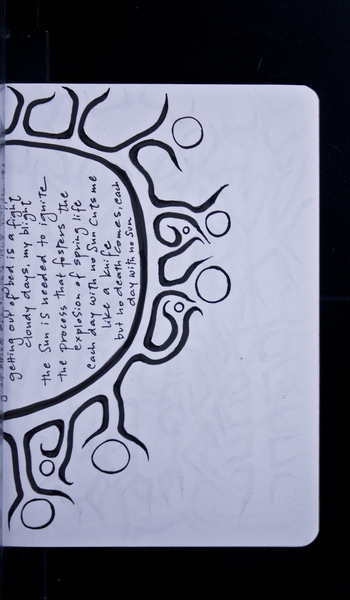 getting out of bed is a fight
cloudy days. my blight
the sun is needed to ignite
the process that fosters the
explosion of spring life
each day with no sun cuts me
like a knife
but no death comes, each
day with no sun